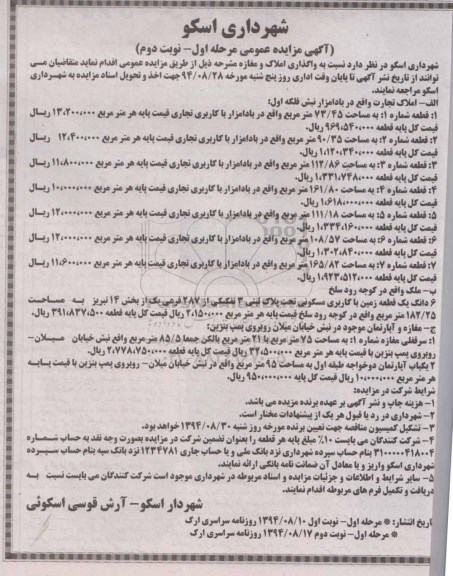 شهرداری اسکو
(آگهی مزایده عمومی مرحله اول- نوبت دوم)
شهرداری اسکو در نظر دارد نسبت به واگذاری املاک و مغازه مشرحه ذیل از طریق مزایده عمومی اقدام نماید متقاضیان می
توانند از تاریخ نشر آگهی تا پایان وقت اداری روز پنج شنبه مورخه ۹۴/۰۸/۲۸ جهت اخذ و تحویل اسناد مزایده به شهرداری
اسکو مراجعه نمایند.
الف- املاک تجارت واقع در بادامزار نبش فلکه اول:
۱: قطعه شماره ۱: به مساحت ۷۳/۴۵ متر مربع واقع در بادامزار با کاربری تجاری قیمت پایه هر متر مربع ۱۳,۲۰۰,۰۰۰ ریال
قیمت کل پایه قطعه ۹۶۹,۵۴۰,۰۰۰ ریال.
۲: قطعه شماره ۲: به مساحت ۹۰/۳۵ متر مربع واقع در بادامزار با کاربری تجاری قیمت پایه هر متر مربع ۱۲,۴۰۰,۰۰۰ ریال
قیمت کل پایه قطعه ۱,۱۲۰,۳۴۰,۰۰۰ ریال.
۳: قطعه شماره ۳: به مساحت ۱۱۲/۸۶ متر مربع واقع در بادامزار با کاربری تجاری قیمت پایه هر متر مربع ۱۱,۸۰۰,۰۰۰ ریال
قیمت کل پایه قطعه ۱,۳۳۱,۷۴۸,۰۰۰ ریال.
۴: قطعه شماره ۴: به مساحت ۱۶۱/۸۰ متر مربع واقع در بادامزار با کاربری تجاری قیمت پایه هر متر مربع ۱۰,۰۰۰,۰۰۰ ریال
قیمت کل پایه قطعه ۱,۶۱۸,۰۰۰,۰۰۰ ریال.
۵: قطعه شماره ۵: به مساحت ۱۱۱/۱۸ متر مربع واقع در بادامزار با کاربری تجاری قیمت پایه هر متر مربع ۱۲,۰۰۰,۰۰۰ ریال
قیمت کل پایه قطعه ۱,۳۳۴,۱۶۰,۰۰۰ ریال.
۶: قطعه شماره ۶: به مساحت ۱۰۸/۵۷ متر مربع واقع در بادامزار با کاربری تجاری قیمت پایه هر متر مربع ۱۲,۰۰۰,۰۰۰ ریال
قیمت کل پایه قطعه ۱,۳۰۲,۸۴۰,۰۰۰ ریال.
۷: قطعه شماره ۷: به مساحت ۱۶۵/۸۲ متر مربع واقع در بادامزار با کاربری تجاری قیمت پایه هر متر مربع ۱۱,۶۰۰,۰۰۰ ریال
قیمت کل پایه قطعه ۱,۹۲۳,۵۱۲,۰۰۰ ریال.
ب- ملک واقع در کوچه رود سلخ
۶ دانگ یک قطعه زمین با کاربری مسکونی تحت پلاک ثبتی ۳ تفکیکی از ۲۸۷ فرعی یک از بخش ۱۴ تبریز به مساحت
۱۸۲/۲۵ متر مربع واقع در کوچه رود سلخ قیمت پایه هر متر مربع ۲,۱۵۰,۰۰۰ ریال قیمت کل پایه قطعه ۳۹۱,۸۳۷,۵۰۰ ریال.
ج- مغازه و آپارتمان موجود در نبش خیابان میلان روبروی پمپ بنزین:
۱: سرقفلی مغازه شماره ۱: به مساحت ۷۵ متر مربع با ۲۱ متر مربع بالکن جمعا ۸۵/۵ متر مربع واقع نبش خیابان میلان-
روبروی پمپ بنزین با قیمت پایه هر متر مربع ۳۲,۵۰۰,۰۰۰ ریال قیمت کل پایه قطعه ۲,۷۷۸,۷۵۰,۰۰۰ ریال.
۲ یکباب آپارتمان دوخواجه طبقه اول به مساحت ۹۵ متر مربع واقع در نبش خیابان میلان- روبروی پمپ بنزین با قیمت پایه
هر متر مربع ۱۰,۰۰۰,۰۰۰ ریال قیمت کل پایه ۹۵۰,۰۰۰,۰۰۰ ریال.
شرایط شرکت در مزایده:
۱- هزینه چاپ و نشر آگهی بر عهده برنده مزیده می باشد.
۲- شهرداری در رد یا قبول هر یک از پیشنهادات مختار است.
۳- تشکیل کمیسیون مناقصه جهت تعیین برنده مورخه روز شنبه ۱۳۹۴/۰۸/۳۰ خواهد بود.
۴- شرکت کنندگان می بایست ۱۰٪ مبلغ پایه هر قطعه را بعنوان تضمین شرکت در مزایده بصورت وجه نقد به حساب شماره
۳۱۰۰۰۰۰۴۱۸۰۰۴ بنام حساب سپرده شهرداری نزد بانک ملی و یا حساب جاری ۱۲۳۴۷۸۱ نزد بانک سپه بنام حساب سپرده
شهرداری اسکو واریز و یا معادل آن ضمانت نامه بانکی ارائه نمایند.
۵- سایر شرایط و اطلاعات و جزئیات مزایده و اسناد مربوطه در شهرداری موجود است شرکت کنندگان می بایست نسبت به
دریافت و تکمیل فرم های مربوطه اقدام نمایند.
شهردار اسکو- آرش قوسی اسکوئی
تاریخ انتشار: * مرحله اول- نوبت اول ۱۳۹۴/۰۸/۱۰ روزنامه سراسری ارک
* مرحله اول- نوبت دوم ۱۳۹۴/۰۸/۱۷ روزنامه سراسری ارک